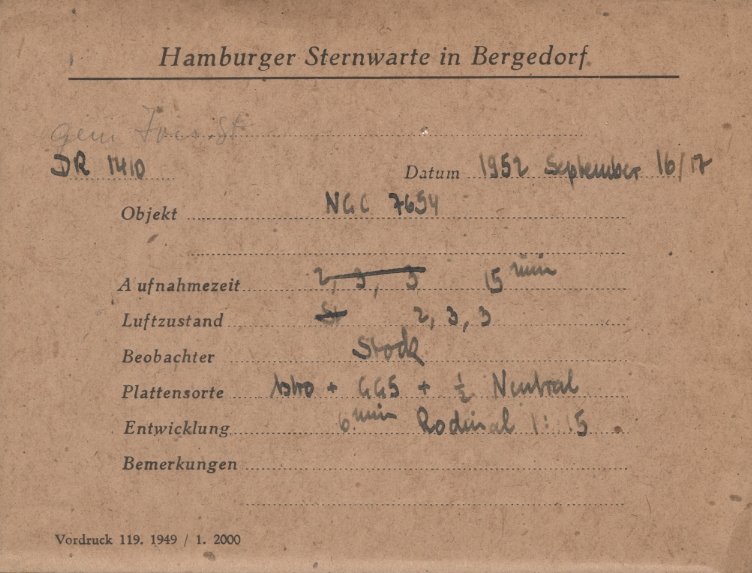 Hamburger Sternwarte in Bergedorf.
gem
DR 1410 Datum 1952 September 16/17
Objekt NGC 7654
Aufnahmezeit 2, 3, 3 15 min
Luftzustand 2, 3, 3
Beobachter Stock
Plattensorte Astro + GG5 + ½ Neutral
Entwicklung 6 min Rodinal 1:15
Bemerkungen
Vordruck 119. 1949 / 1. 2000